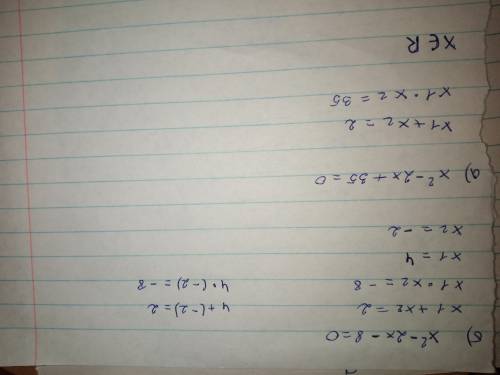 б) x² - 2x - 8 = 0
x1 + x2 = 2    4 + (-2) = 2
x1 · x2 = -8    4 · (-2) = -8
x1 = 4
x2 = -2
д) x² - 2x + 35 = 0
x1 + x2 = 2
x1 · x2 = 35
x ∈ R